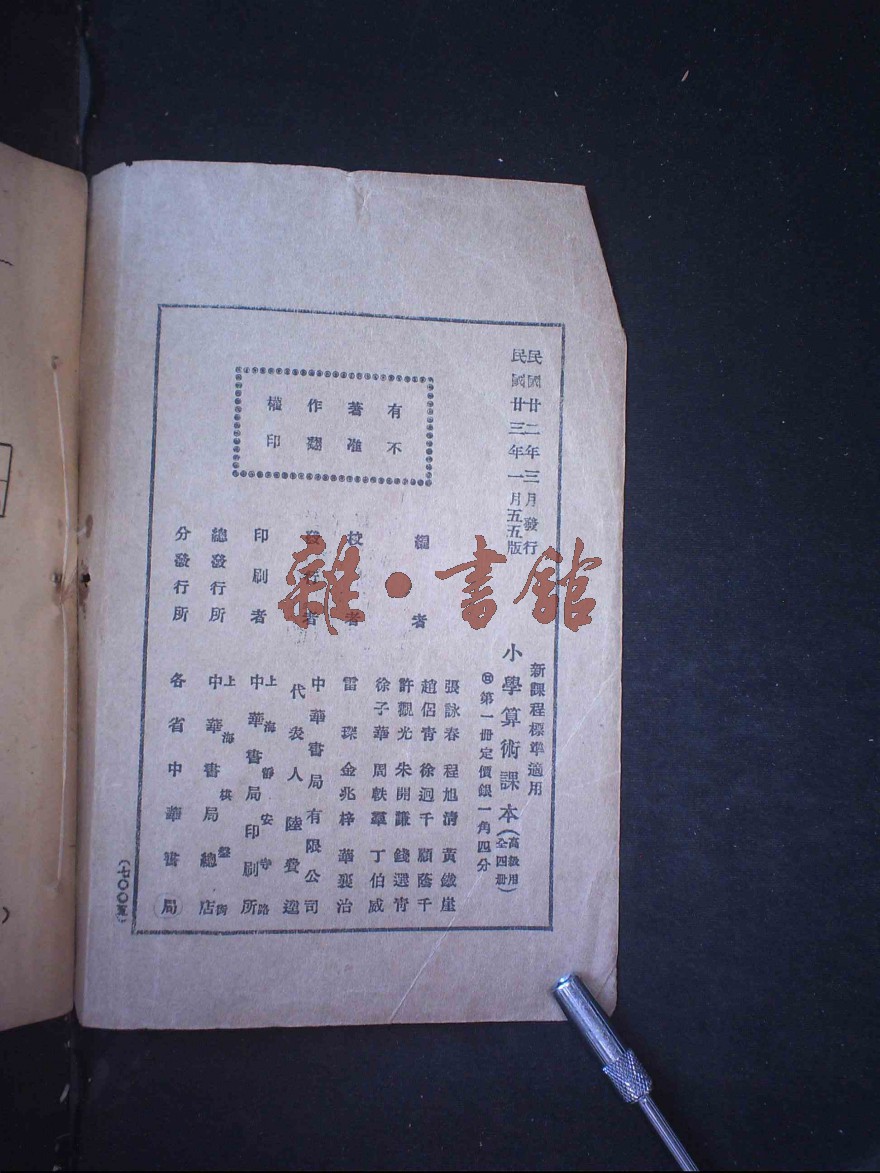 民國廿二年三月發行
民國廿三年一月五五版
新課程標準適用
小學算術課本(高級用全四冊)
第一冊定價銀一角四分
有著作權
不准翻印
編者
張詠春 程旭清 黃鐵崖
趙侶青 徐迥千 顧蔭千
許觀光 朱開謙 錢選青
徐子華 周軼羣 丁伯威
校者
雷琛 金兆梓 華襄治
發行者
中華書局有限公司
代表人 陸費逵
印刷者
上海靜安寺路
中華書局印刷所
總發行所
上海棋盤街
中華書局總店
分發行所
各省中華書局
雜·書館